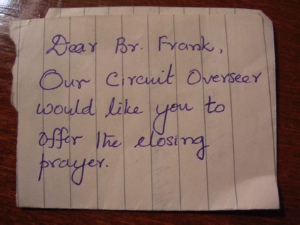 Dear Br. Frank,
Our Circuit Overseer
would like you to
offer the closing
prayer.